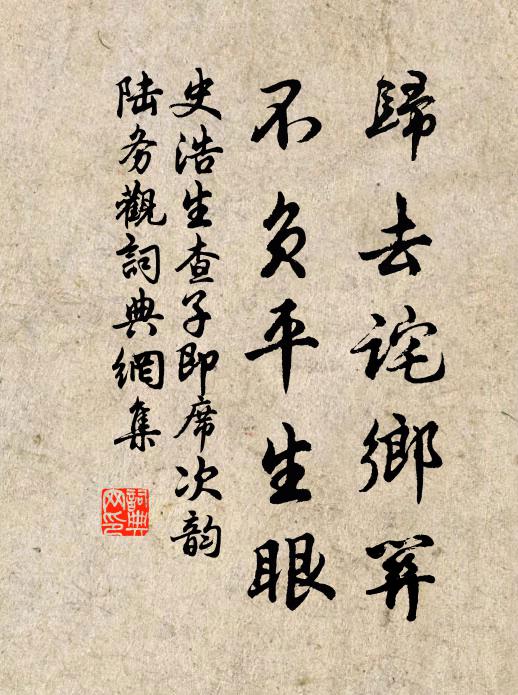 歸去詫鄉關
不负平生眼
史浩生查子即席次韵
陆务觀詞典網集
詞典
网印